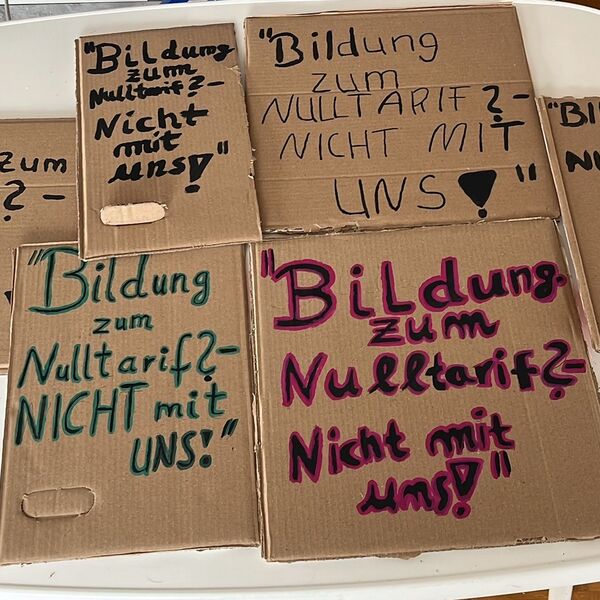 "Bildung
zum
Nulltarif?-
Nicht
mit
uns!"
"Bildung
zum
NULLTARIF?-
NICHT MIT
UNS!"
zum
?-
"Bi
"Bildung
zum
Nulltarif?-
NICHT mit
UNS!"
"Bildung
zum
Nulltarif?-
Nicht mit
uns!"